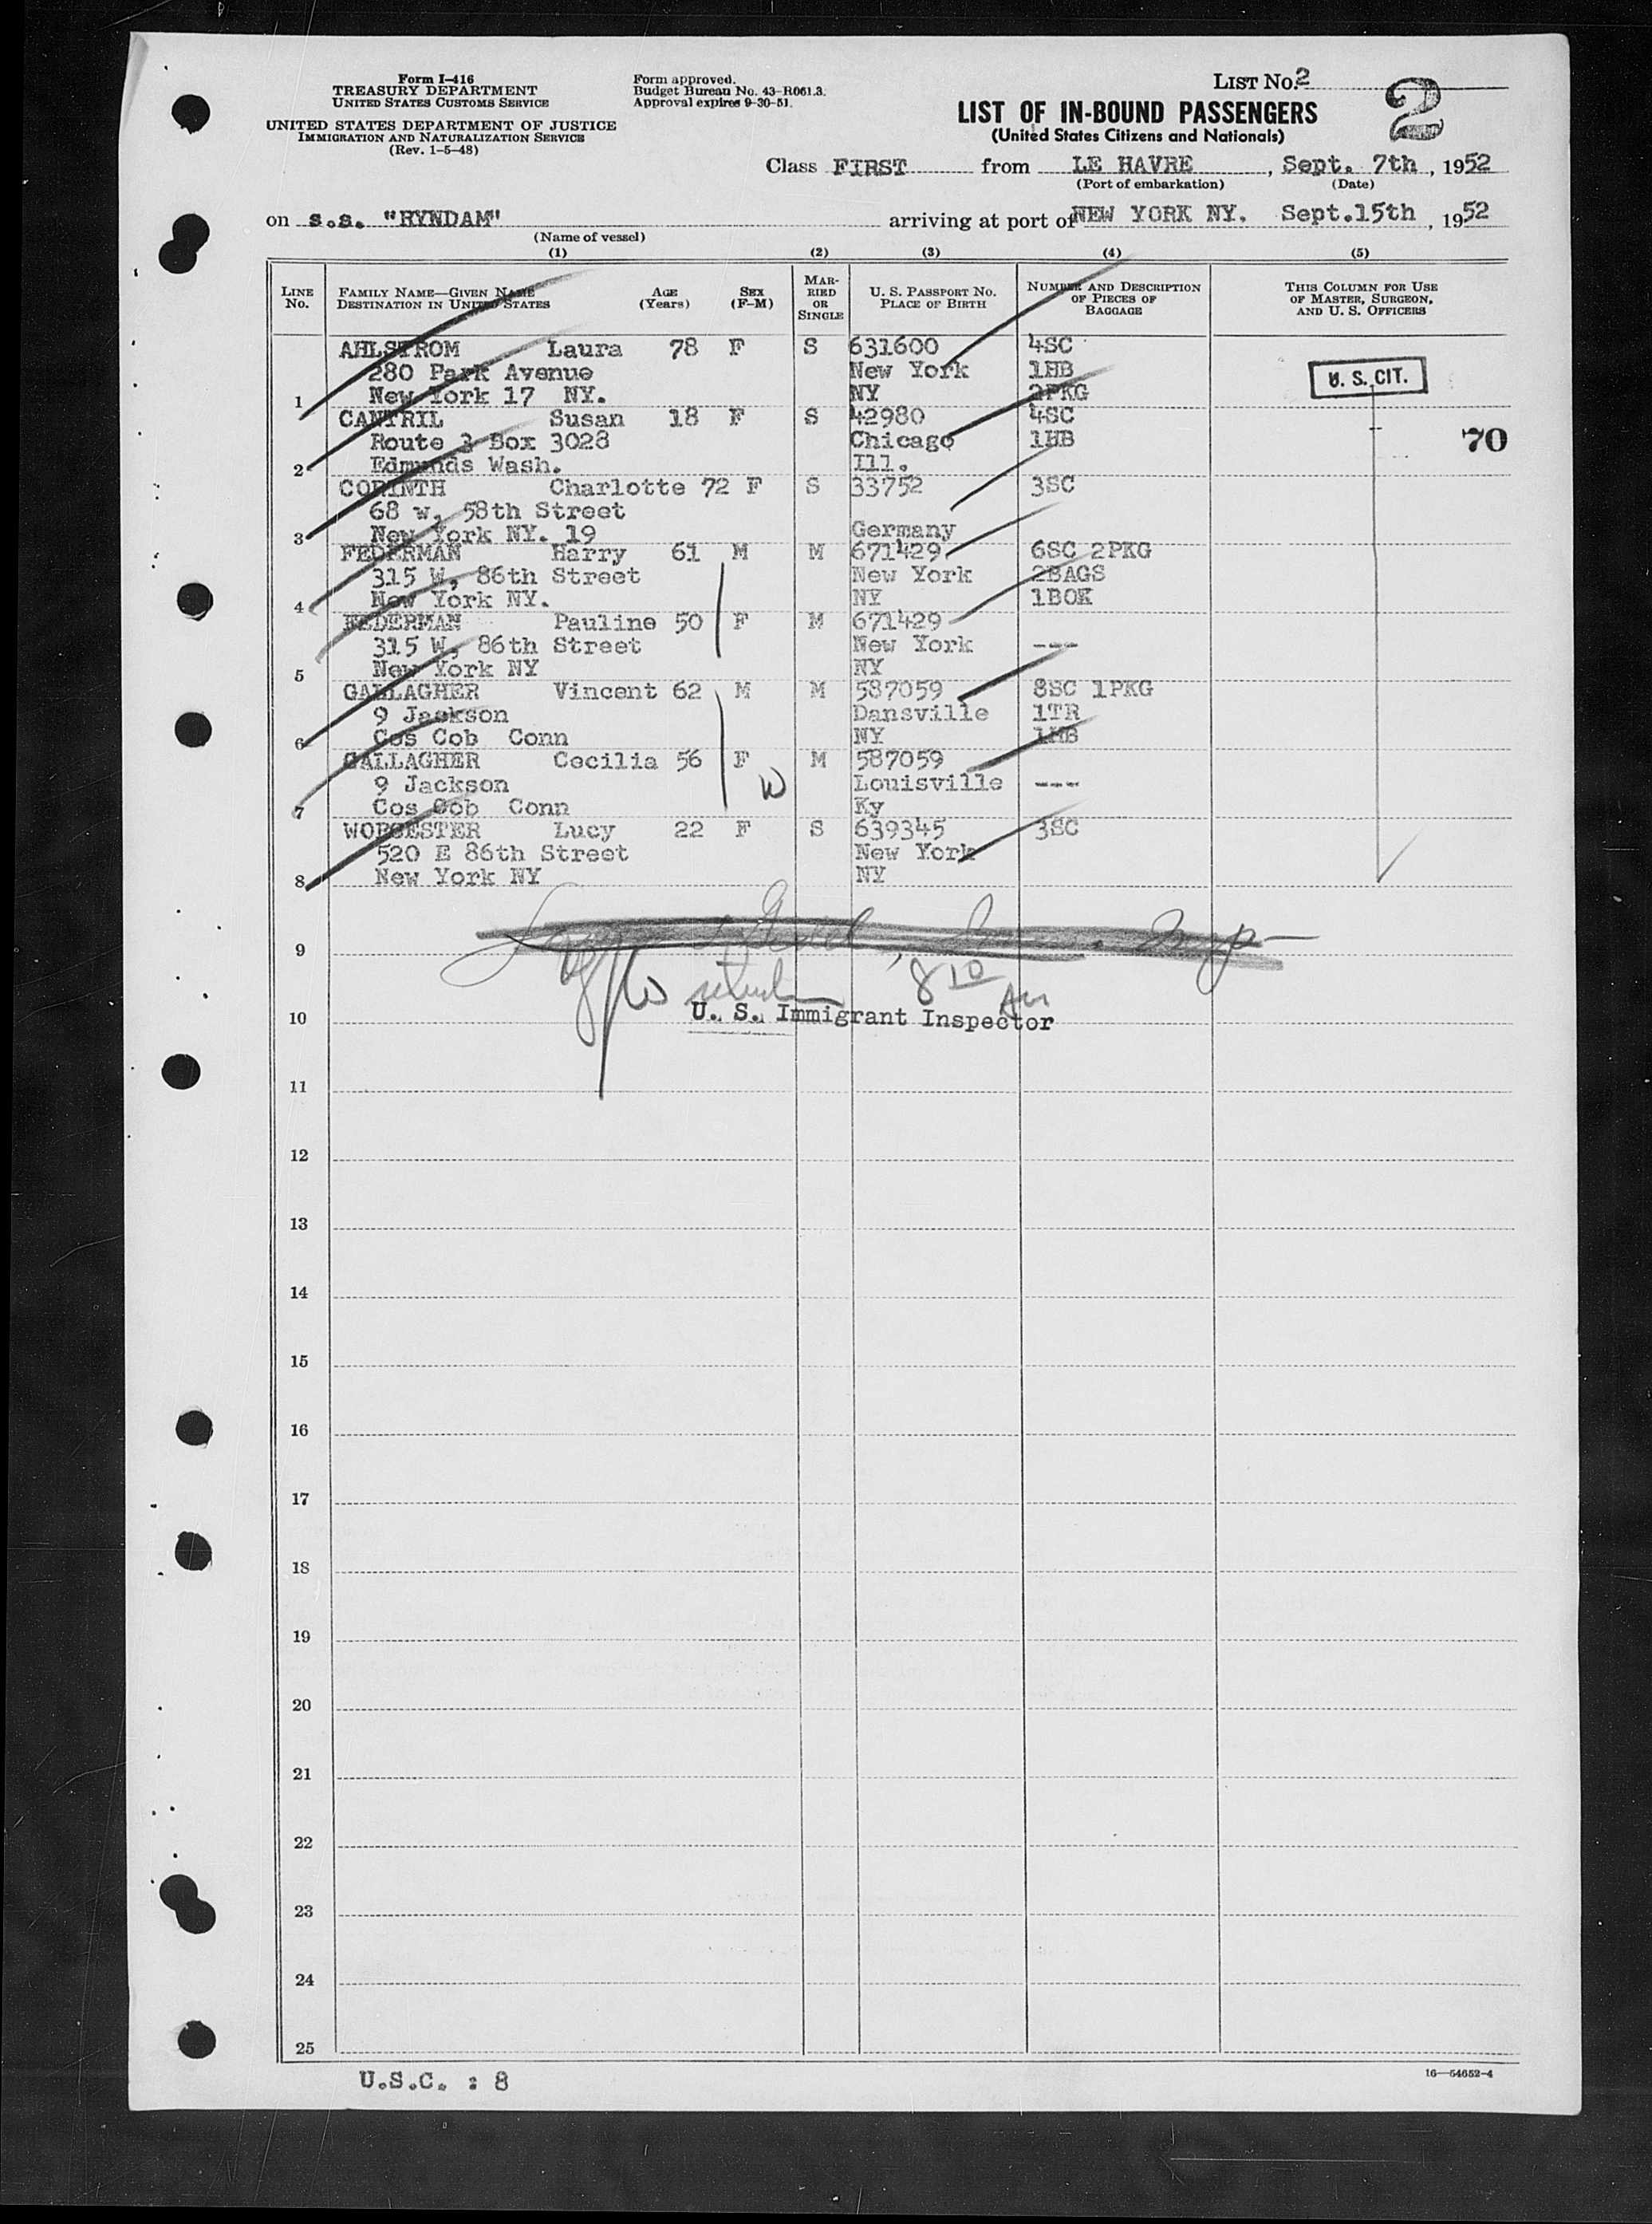 Form I-416
TREASURY DEPARTMENT
UNITED STATES CUSTOMS SERVICE
UNITED STATES DEPARTMENT OF JUSTICE
IMMIGRATION AND NATURALIZATION SERVICE
(Rev. 1-5-48)
Form approved.
Budget Bureau No. 43-R061.3.
Approval expires 9-30-51.
LIST No. 2
2
LIST OF IN-BOUND PASSENGERS
(United States Citizens and Nationals)
Class FIRST from LE HAVRE, Sept. 7th, 1952
(Port of embarkation) (Date)
on s.s. "RYNDAM" arriving at port of NEW YORK NY. Sept.15th, 1952
(Name of vessel)
(1) (2) (3) (4) (5)
LINE No.
FAMILY NAME—GIVEN NAME
DESTINATION IN UNITED STATES
AGE (Years)
SEX (F-M)
MARRIED OR SINGLE
U. S. PASSPORT NO.
PLACE OF BIRTH
NUMBER AND DESCRIPTION OF PIECES OF BAGGAGE
THIS COLUMN FOR USE OF MASTER, SURGEON, AND U. S. OFFICERS
AHLSTROM Laura 78 F S 631600 4SC
280 Park Avenue New York 1HB
1 New York 17 NY. NY 2PKG
U. S. CIT.
CANTRIL Susan 18 F S 42980 4SC
Route 3 Box 3028 Chicago 1HB
70
2 Edmunds Wash. Ill.
CORINTH Charlotte 72 F S 33752 3SC
68 w, 58th Street
3 New York NY. 19 Germany
FEDERMAN Harry 61 M M 671429 6SC 2PKG
315 W, 86th Street New York 2BAGS
4 New York NY. NY 1BOX
FEDERMAN Pauline 50 F M 671429
315 W, 86th Street New York ---
5 New York NY NY
GALLAGHER Vincent 62 M M 587059 8SC 1PKG
9 Jackson Dansville 1TR
6 Cos Cob Conn NY 1HB
GALLAGHER Cecilia 56 F M 587059
9 Jackson W Louisville ---
7 Cos Cob Conn Ky
WORCESTER Lucy 22 F S 639345 3SC
520 E 86th Street New York
8 New York NY NY
9
8 10 AM
10 U. S. Immigrant Inspector
11
12
13
14
15
16
17
18
19
20
21
22
23
24
25
U.S.C. : 8
16—54652-4